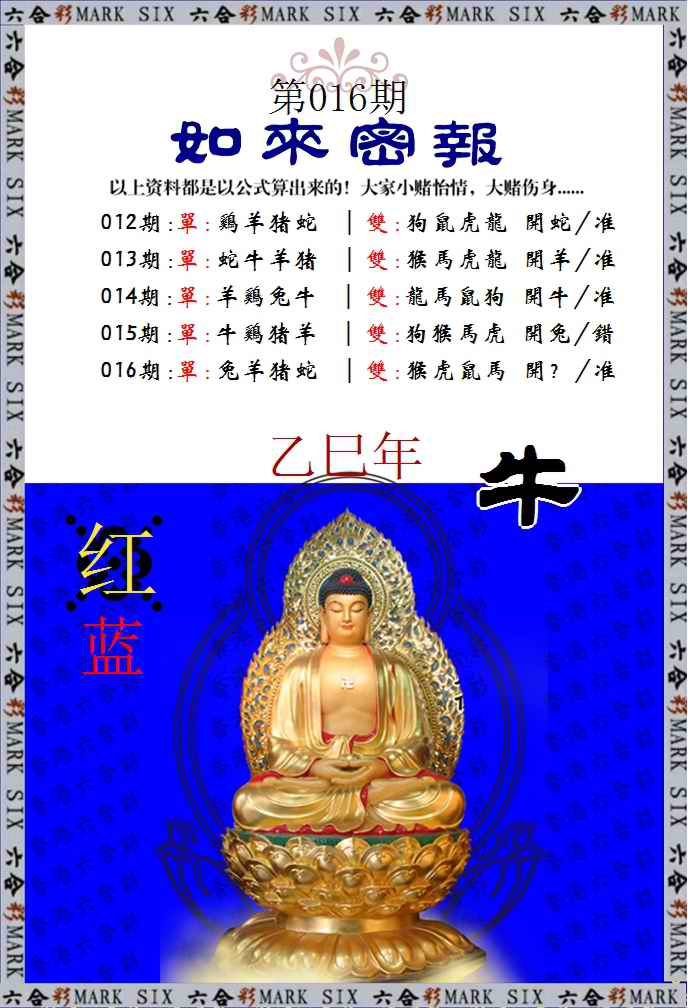 六合彩MARK SIX 六合彩MARK SIX 六合彩MARK SIX 六合彩MARK
第016期
如來密報
以上资料都是以公式算出来的！大家小赌怡情，大赌伤身......
012期:單:鷄羊猪蛇 |雙:狗鼠虎龍 開蛇/准
013期:單:蛇牛羊猪 |雙:猴馬虎龍 開羊/准
014期:單:羊鷄兔牛 |雙:龍馬鼠狗 開牛/准
015期:單:牛鷄猪羊 |雙:狗猴馬虎 開兔/錯
016期:單:兔羊猪蛇 |雙:猴虎鼠馬 開?/准
乙巳年
牛
红
蓝
六合彩MARK SIX 六合彩MARK SIX 六合彩MARK SIX 六合彩MARK